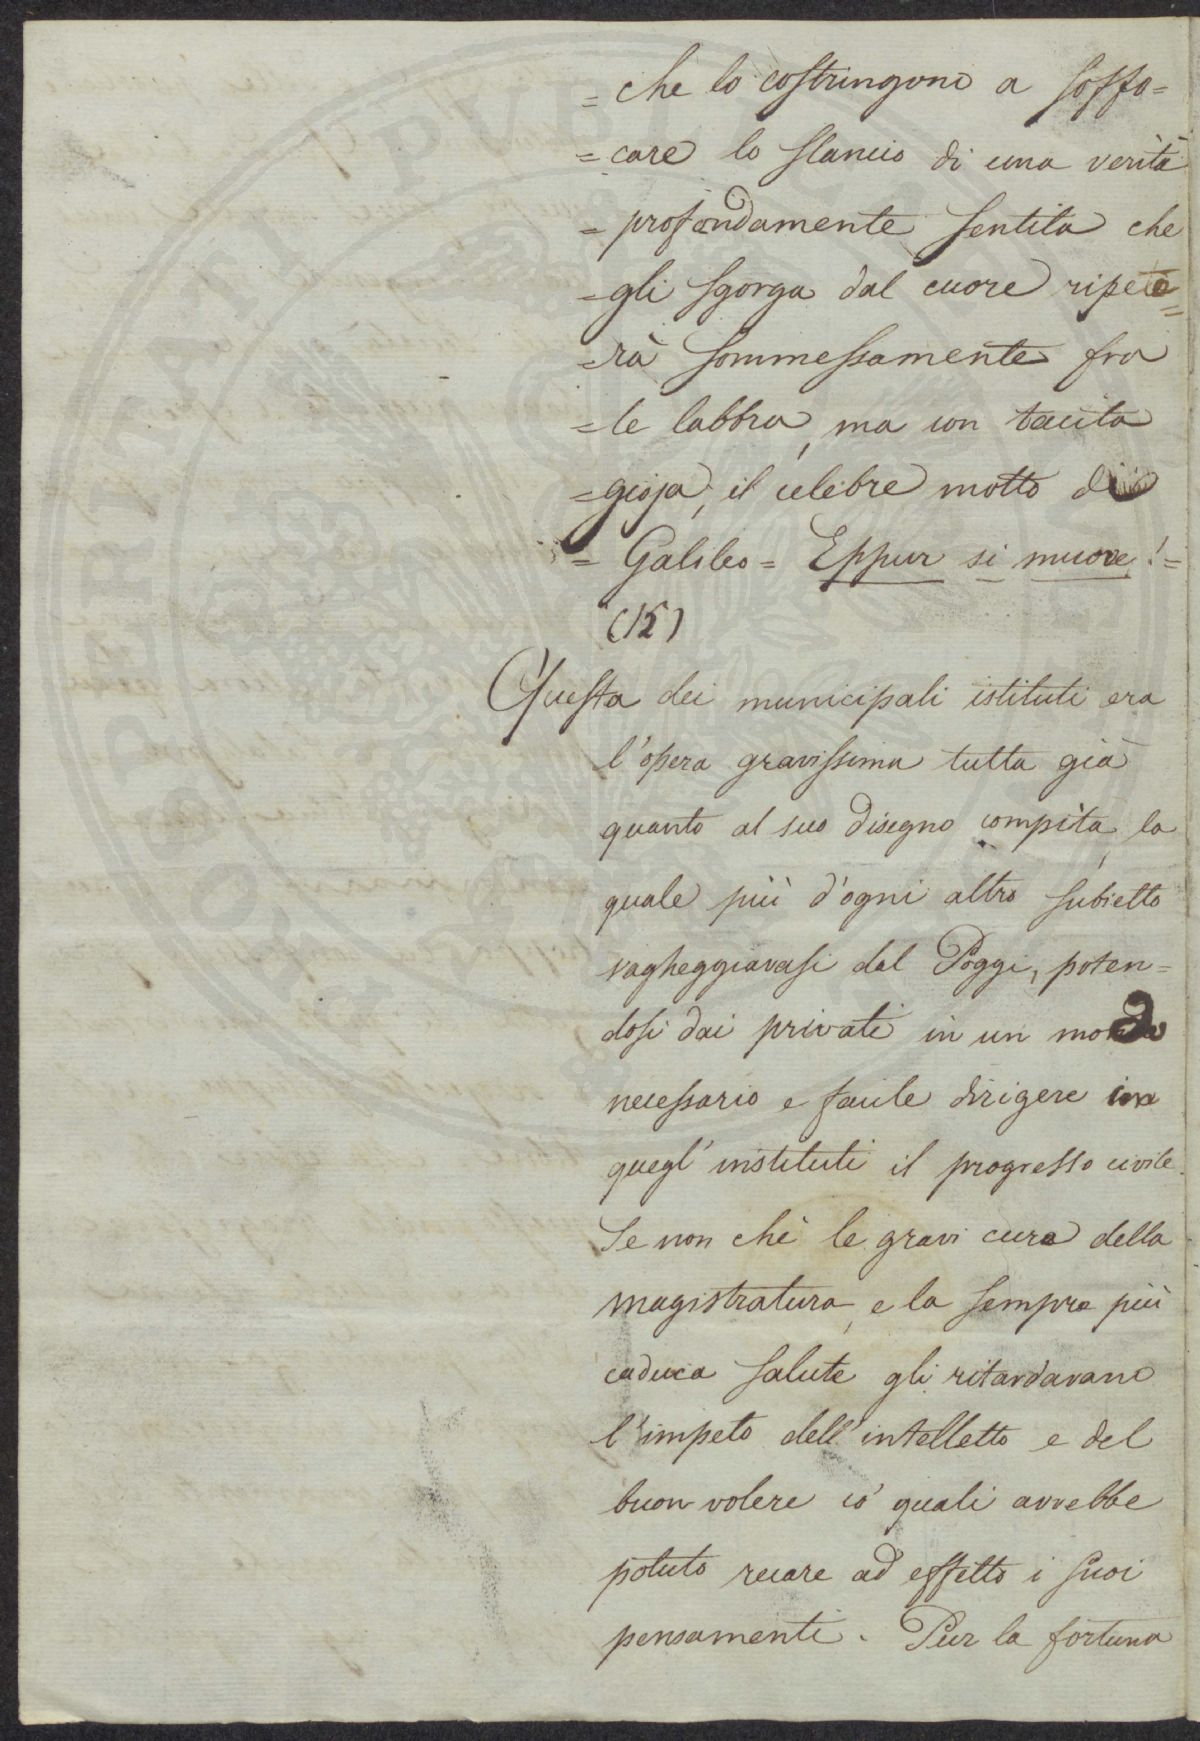 = che lo costringono a soffo=
= care lo slancio di una verità
= profondamente sentita che
= gli sgorga dal cuore ripete=
= rà sommessamente fra
= le labbra, ma con tacita
= gioja, il celebre motto di
= Galileo = Eppur si muove! =
(15)
Questa dei municipali istituti era
l'opera gravissima tutta già
quanto al suo disegno compíta, la
quale più d'ogni altro subietto
vagheggiavasi dal Poggi, poten=
dosi dai privati in un modo
necessario e facile dirigere in
quegl'instituti il progresso civile.
Se non chè le gravi cure della
magistratura, e la sempre più
caduca salute gli ritardavano
l'impeto dell'intelletto e del
buon volere co' quali avrebbe
potuto recare ad effetto i suoi
pensamenti. Pur la fortuna